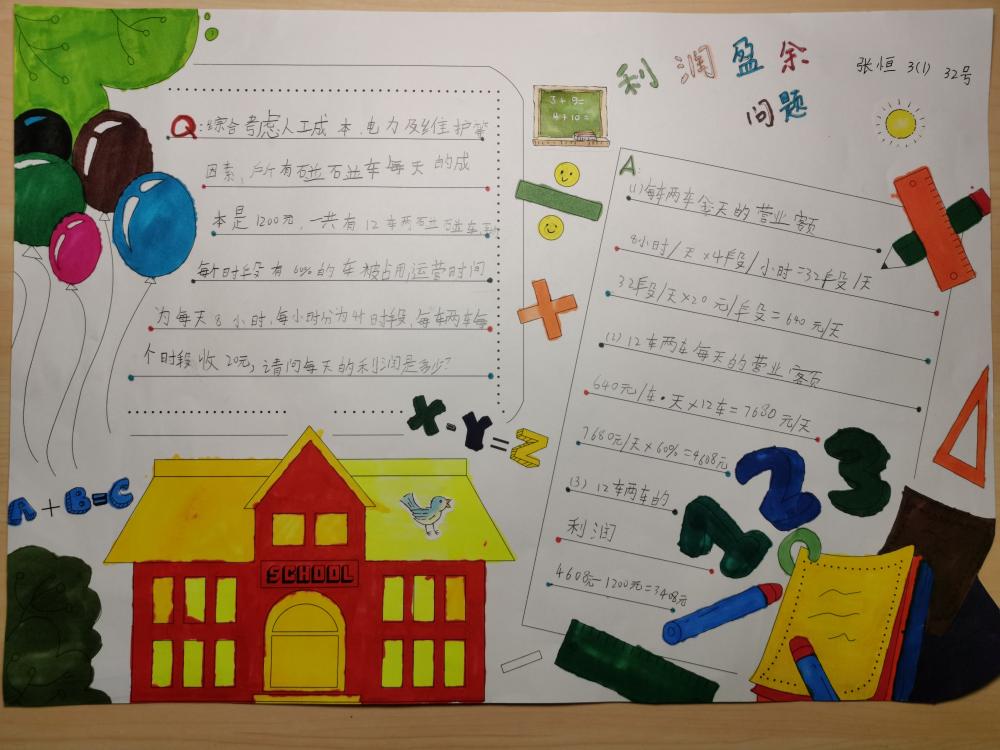 利润盈余
问题
张恒 3(1) 32号
3+9=
4+10=
Q:综合考虑人工成本,电力及维护等
因素,所有碰碰车每天的成
本是1200元,一共有12车两碰碰车,
每个时段有60%的车被占用,运营时间
为每天8小时,每小时分为4个时段,每车两车每
个时段收20元,请问每天的利润是多少?
A:
(1)每车两车全天的营业额
8小时/天×4段/小时=32段/天
32段/天×20元/段=640元/天
(2)12车两车每天的营业额
640元/车·天×12车=7680元/天
7680元/天×60%=4608元
(3)12车两车的
利润
4608元-1200元=3408元
X-Y=Z
A+B=C
SCHOOL
1 2 3